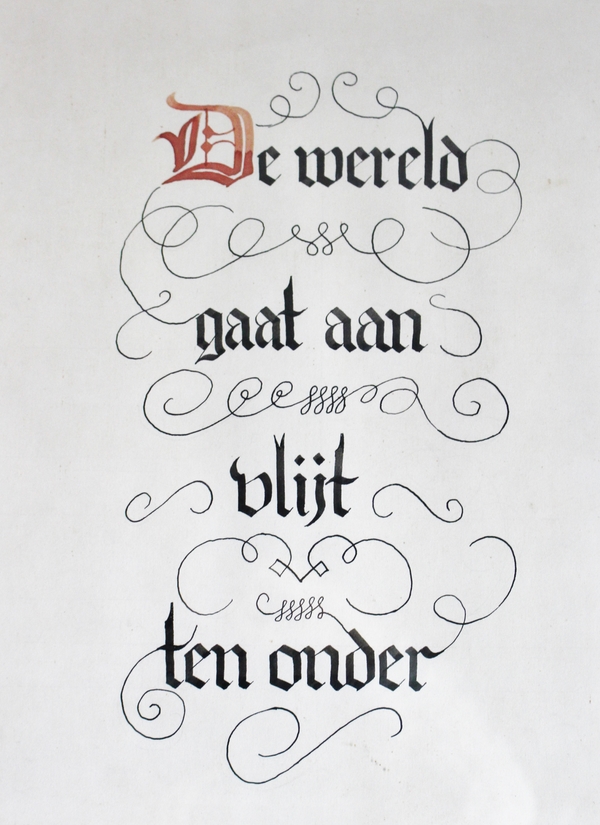 De wereld
gaat aan
vlijt
ten onder